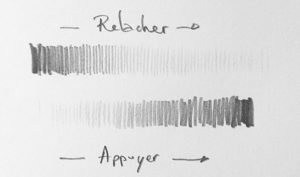 Relacher
Appuyer